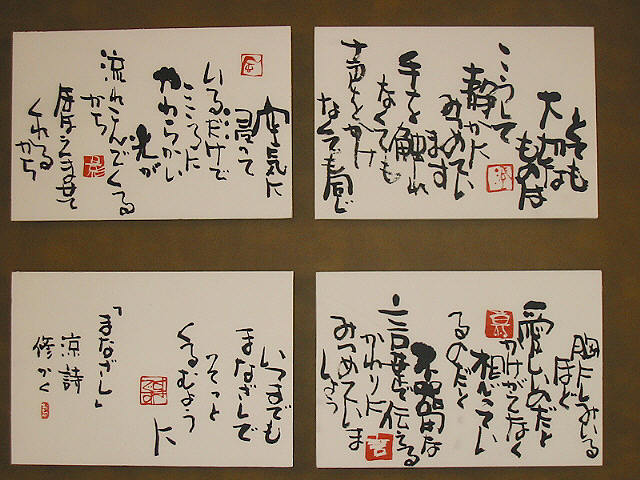 とても
大切な
ものは
こうして
静かに
みつめてい
ます
手を触れ
なくても
声をかけ
なくても同じ
空気に
浸って
いるだけで
こころに
やわらかい
光が
流れこんでくる
から
ほほえませて
くれる
から
胸にしみいる
ほど
愛しいのだと
かけがえなく
想ってい
るのだと
不器用な
言葉で伝える
かわりに
みつめていま
しょう
いつまでも
まなざしで
そっと
くるむよう
に
「まなざし」
涼詩
修かく